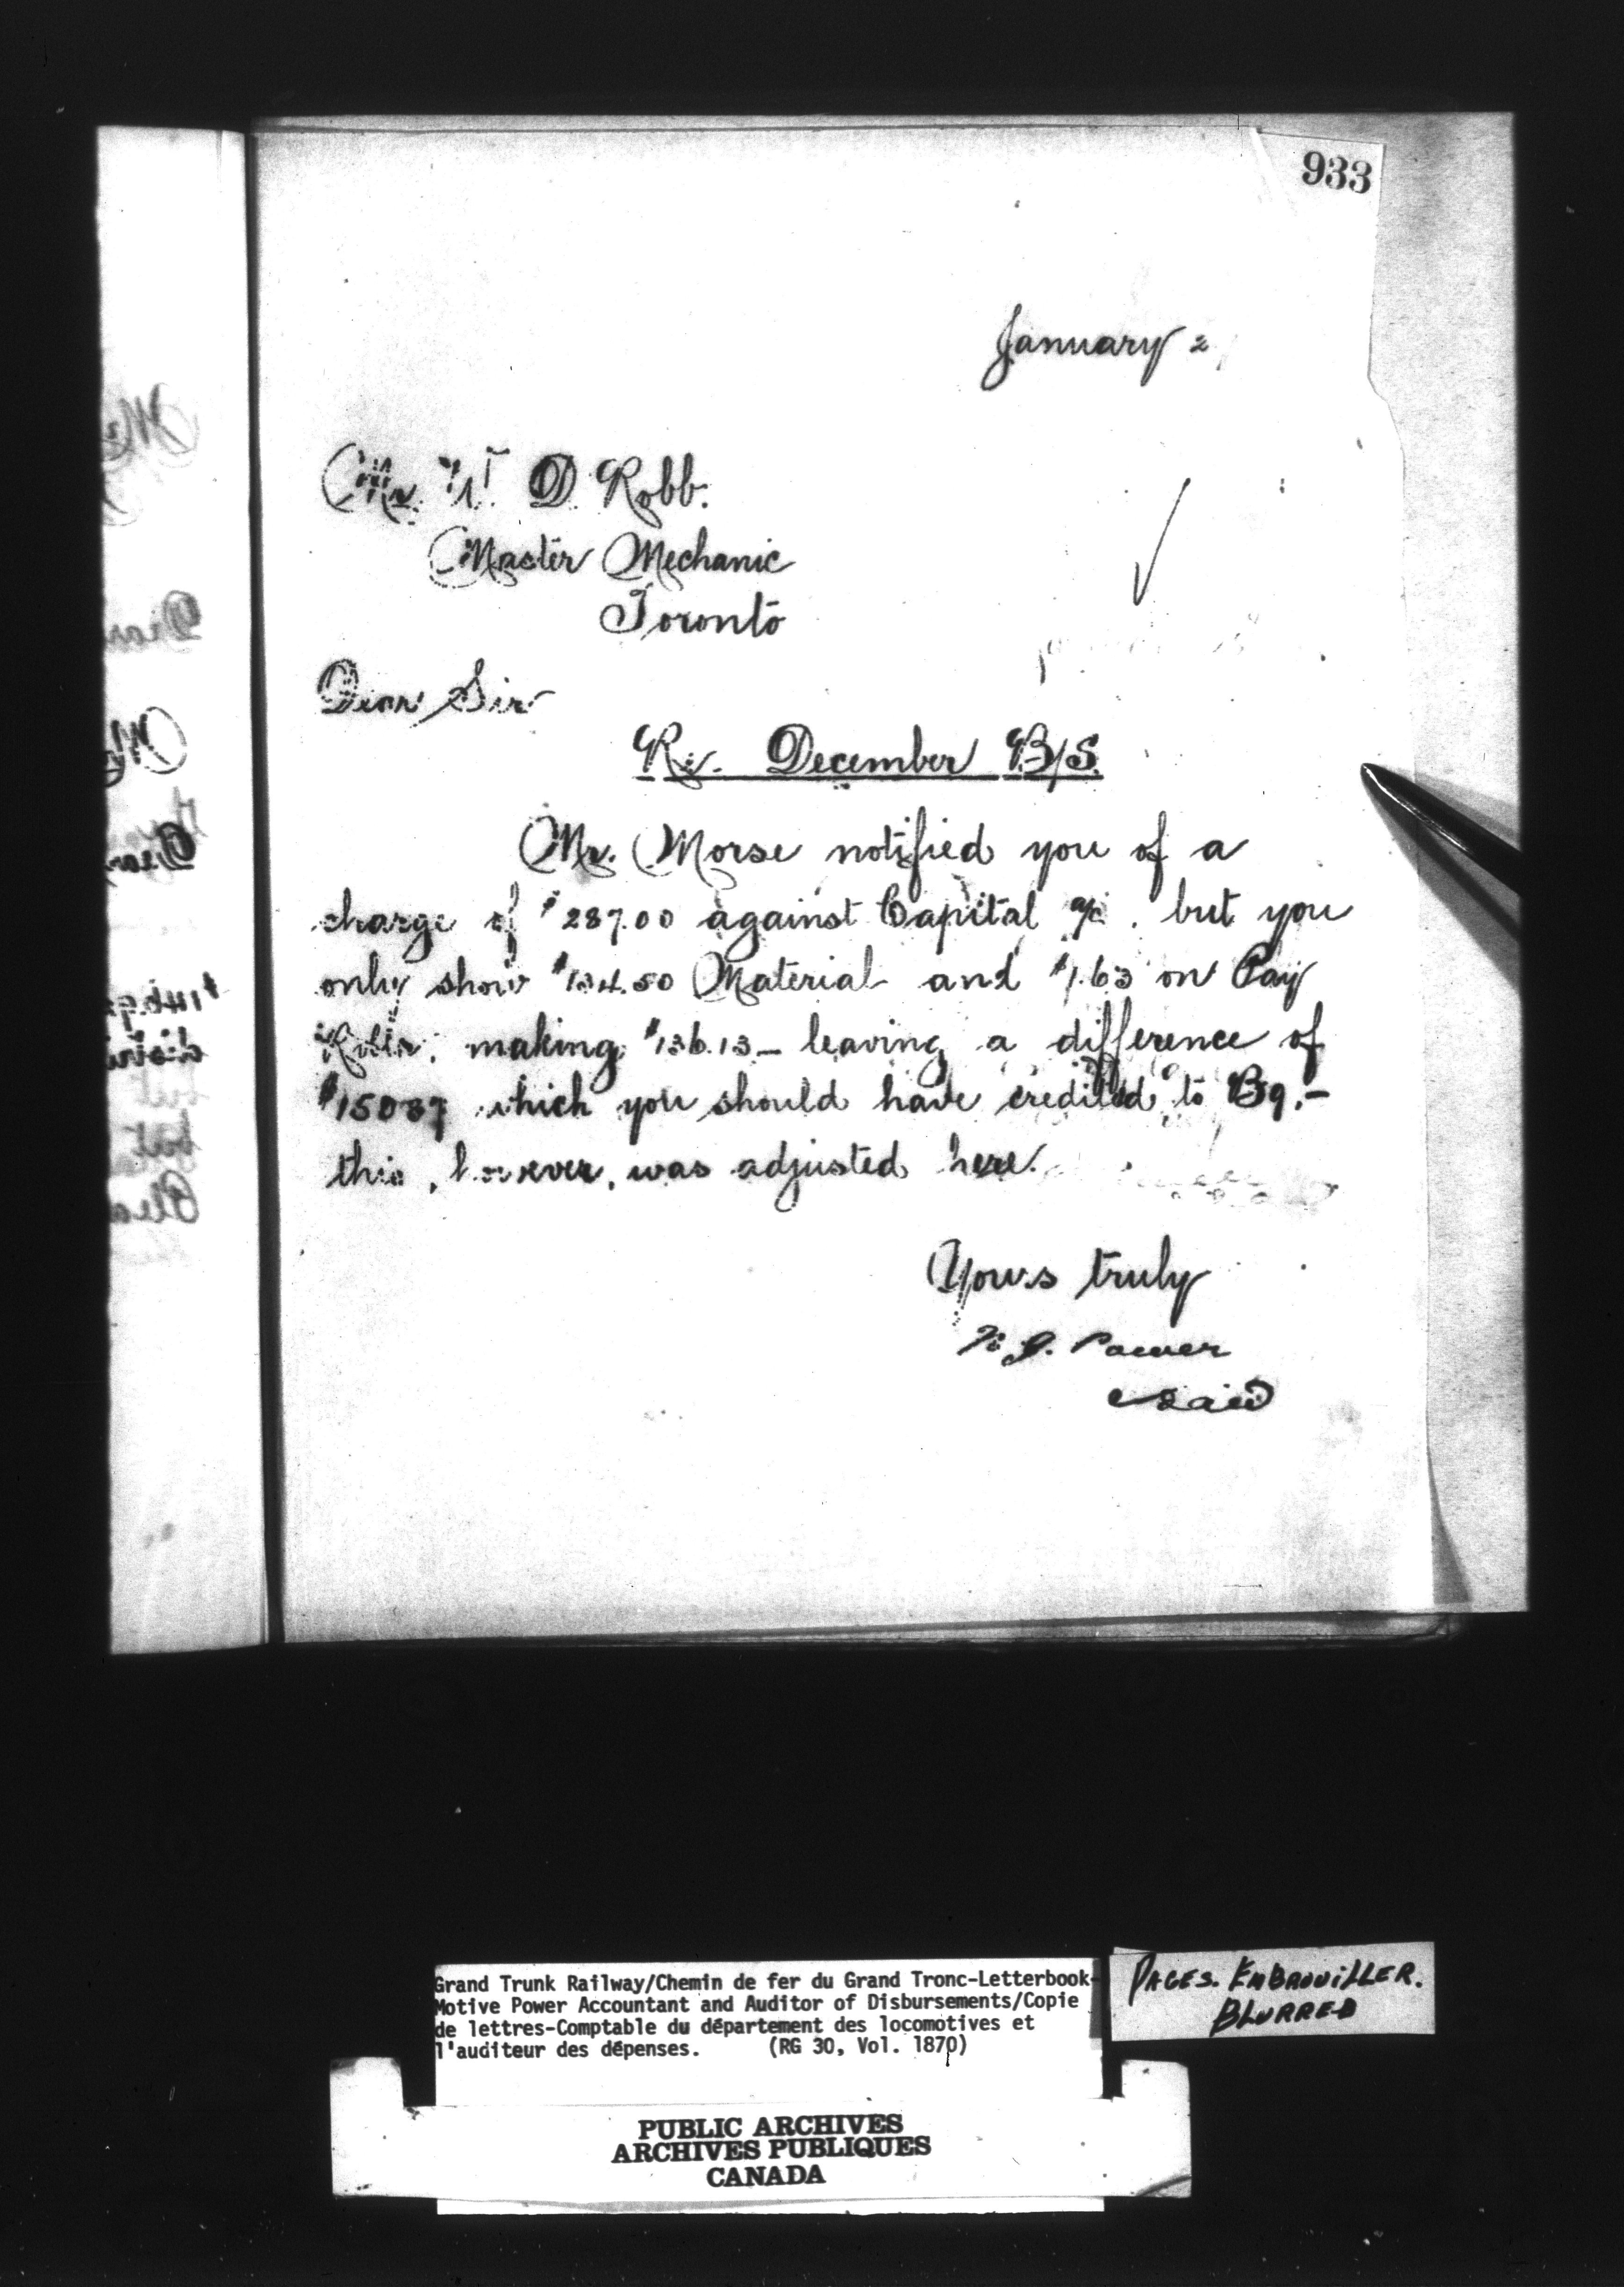 933
January 2
Mr. W. D. Robb.
Master Mechanic
Toronto
Dear Sir
Re. December B/S.
Mr. Morse notified you of a
charge of $287.00 against Capital a/c. but you
only show $134.50 Material and $1.63 on Pay
Rolls, making $136.13 - leaving a difference of
$150 87 which you should have credited to B9.-
this, however, was adjusted here.
Yours truly
J. Power
Grand Trunk Railway/Chemin de fer du Grand Tronc-Letterbook-
Motive Power Accountant and Auditor of Disbursements/Copie
de lettres-Comptable du département des locomotives et
l'auditeur des dépenses. (RG 30, Vol. 1870)
PAGES. EMBROUILLER.
BLURRED
PUBLIC ARCHIVES
ARCHIVES PUBLIQUES
CANADA